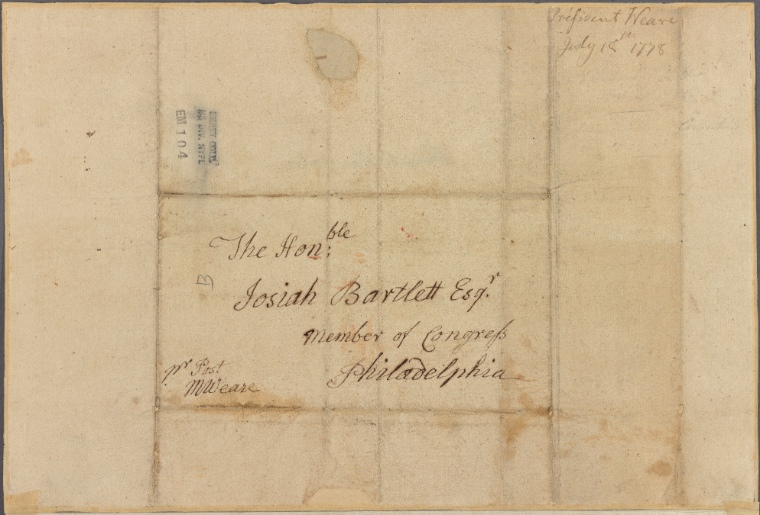 President Weare
July 18th 1778
EMMET COLL.
MS DIV. NYPL
EM 104
The Hon:ble
B
Josiah Bartlett Esqr.
Member of Congress
Philadelphia
pr Post
MWeare